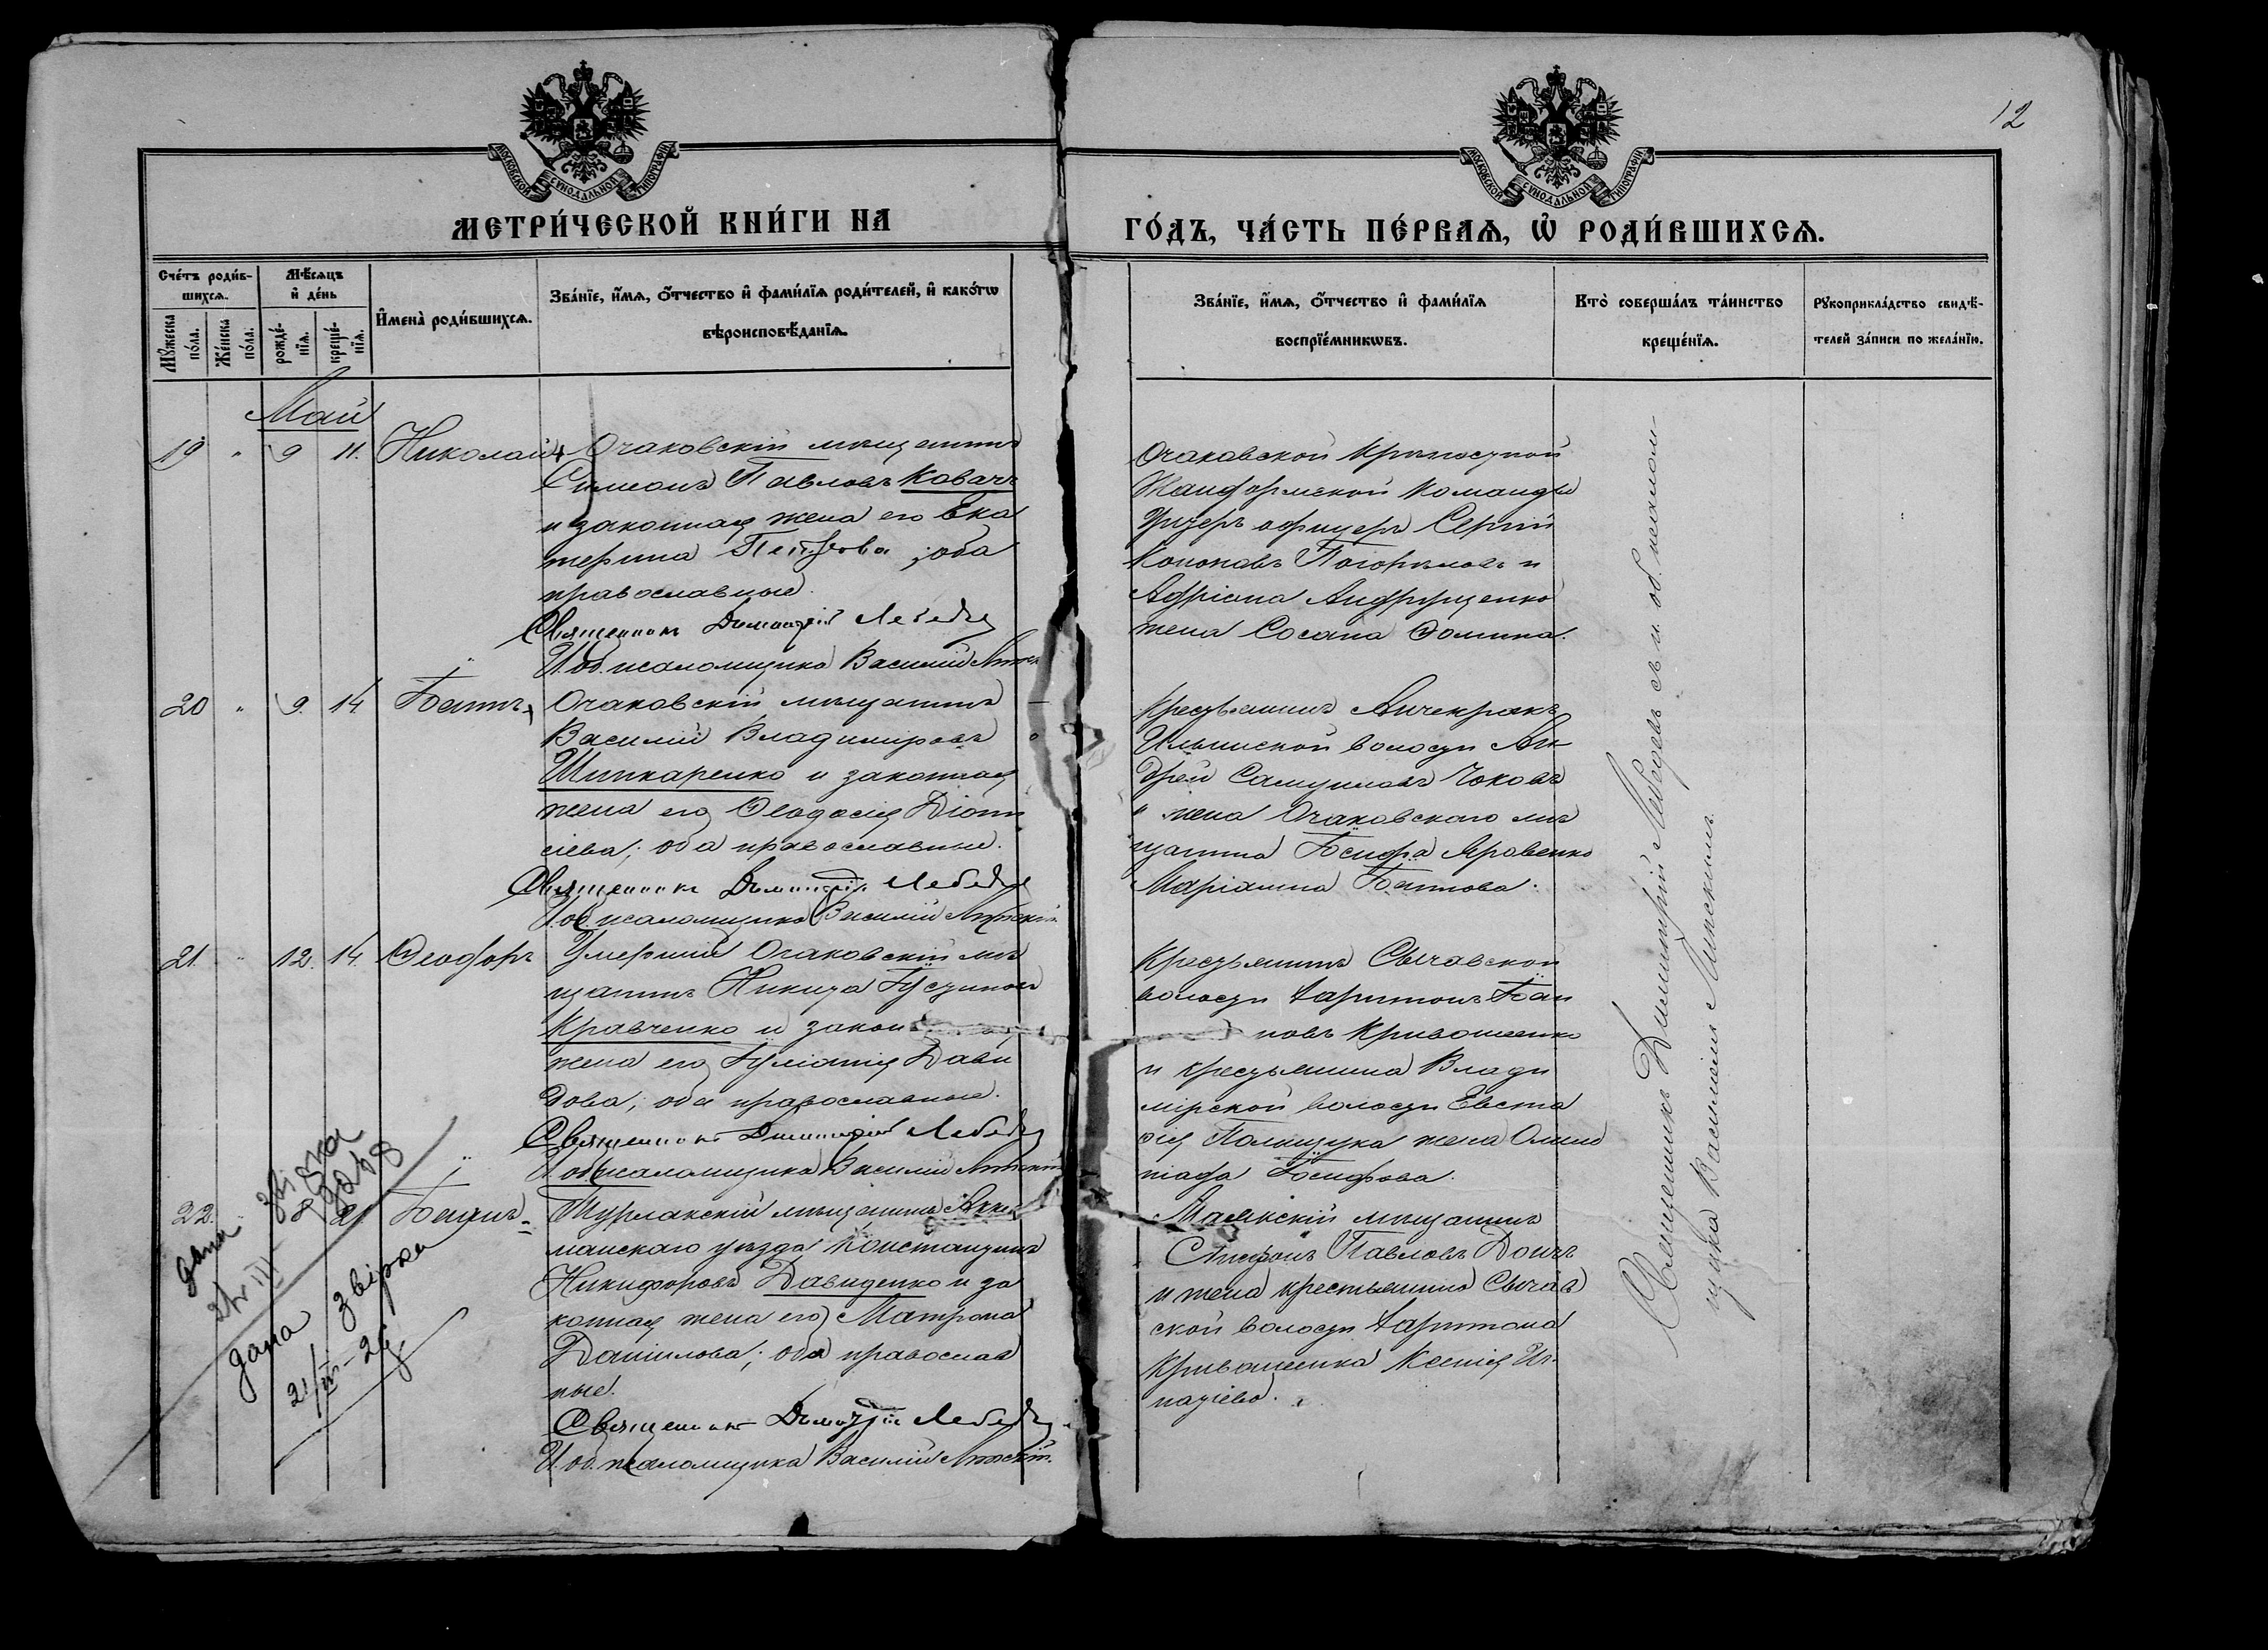 12
МОСКОВСКОЙ СѴНОДАЛЬНОЙ ТИПОГРАФІИ
МОСКОВСКОЙ СѴНОДАЛЬНОЙ ТИПОГРАФІИ
МЕТРИ́ЧЕСКОЙ КНИ́ГИ НА
ГО́ДЪ, ЧА́СТЬ ПЕ́РВАѦ, Ѡ҆ РОДИ́ВШИХСѦ.
Сче́тъ роди́в-
шихсѧ.
Мꙋ́жеска
по́ла.
Же́нска
по́ла.
Мѣ́сѧцъ
и҆ де́нь
рожде́-
нїѧ.
креще́-
нїѧ.
И҆мена̀ роди́вшихсѧ.
Зва́нїе, и҆́мѧ, ѻ҆́тчество и҆ фами́лїѧ роди́телей, и҆ како́гѡ
вѣроисповѣ́данїѧ.
Зва́нїе, и҆́мѧ, ѻ҆́тчество и҆ фами́лїѧ
воспрїе́мникѡвъ.
Кто̀ соверша́лъ та́инство
креще́нїѧ.
Рꙋкоприкла́дство свидѣ́-
телей за́писи по жела́нїю.
Май
19 " 9 11. Николай
Очаковскій мѣщанинъ
Симеонъ Павловъ Ковачъ
и законная жена его Ека
терина Петрова; оба
православные.
Священникъ Димитрій Лебедев
И. об. псаломщика Василій
Очаковской Крѣпостной
Жандармской Команды
Унтеръ офицеръ Сергій
Кононовъ Погорѣловъ и
Адріана Андрущенко
жена Сосана Фомина.
20 " 9. 14. Іоаннъ
Очаковскій мѣщанинъ
Василій Владиміровъ
Шинкаренко и законная
жена его Феодосія Діони
сіева; оба православные.
Священникъ Димитрій Лебедев
И. об. псаломщика Василій
Крестьянинъ Анчекрак
Ильинской волости Ан
дрей Самуиловъ Чоковъ
и жена Очаковскаго мѣ
щанина Іосифа Яровенко
Маріанна Іоаннова.
21. " 12. 14. Феодоръ
Умершій Очаковскій мѣ
щанинъ Никита Іустиновъ
Кравченко и закон
жена его Іуліанія Дави
дова; оба православные.
Священникъ Димитрій Лебедев
И. об. псаломщика Василій
Крестьянинъ Сычавской
волости Харитонъ Іоан
новъ Кривошеенко
и крестьянина Влади
мірской волости Евста
фія Полищука жена Олим
піада Іосифова.
22. " 8 21 Іоаннъ
Турлакскій мѣщанинъ Акке
манскаго уѣзда Константинъ
Никифоровъ Давиденко и за
конная жена его Матрона
Даніилова; оба православ
ные.
Священникъ Димитрій Лебедев
И. об. псаломщика Василій
Маякскій мѣщанинъ
Спиридонъ Павловъ Дончъ
и жена крестьянина Сычав
ской волости Харитона
Кривошеенка Ксенія Иг
натіева.
Священникъ Димитрій Лебедевъ съ и. об. псалом-
щика Василіемъ
дана звірка
дана звірка
21/IV - 26